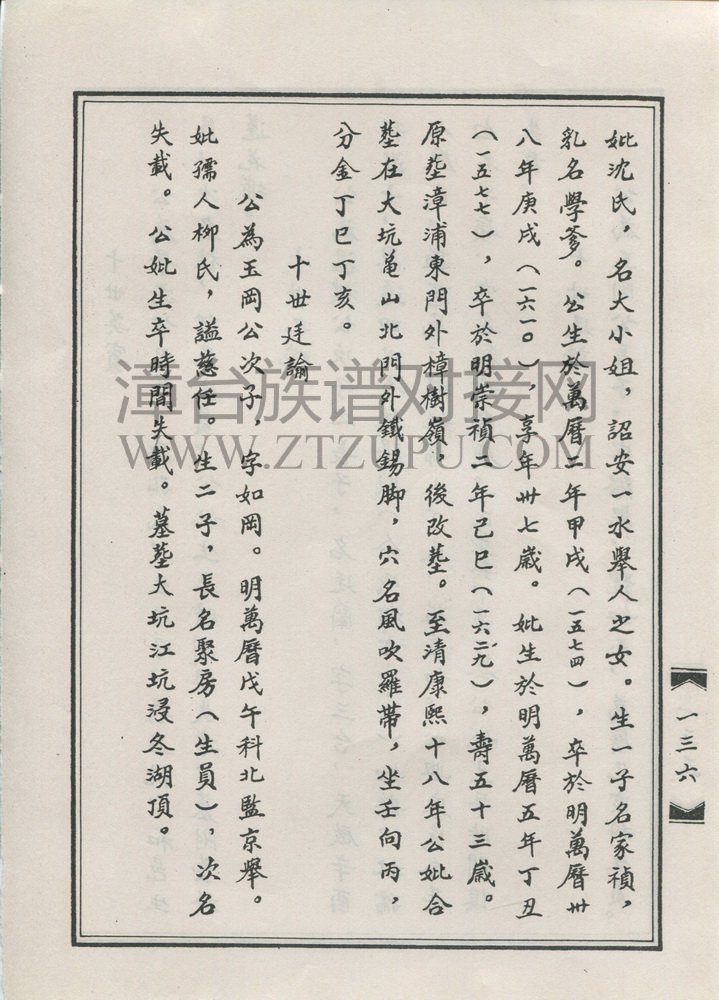 妣沈氏，名大小姐，詔安一水舉人之女。生一子名家禎，
乳名學爹。公生於萬曆二年甲戌（一五七四），卒於明萬曆卅
八年庚戌（一六一〇），享年卅七歲。妣生於明萬曆五年丁丑
（一五七七），卒於明崇禎二年己巳（一六二九），壽五十三歲。
原塟漳浦東門外樟樹嶺，後改塟。至清康熙十八年公妣合
塟在大坑黽山北門外鐵錫脚，穴名風吹羅帶，坐壬向丙，
分金丁巳丁亥。
十世廷諭
公為玉岡公次子，字如岡。明萬曆戊午科北監京舉。
妣孺人柳氏，謚慈任。生二子，長名聚房（生員），次名
失載。公妣生卒時間失載。墓塟大坑江坑浸冬湖頂。
一三六
漳台族谱对接网
WWW.ZTZUPU.COM